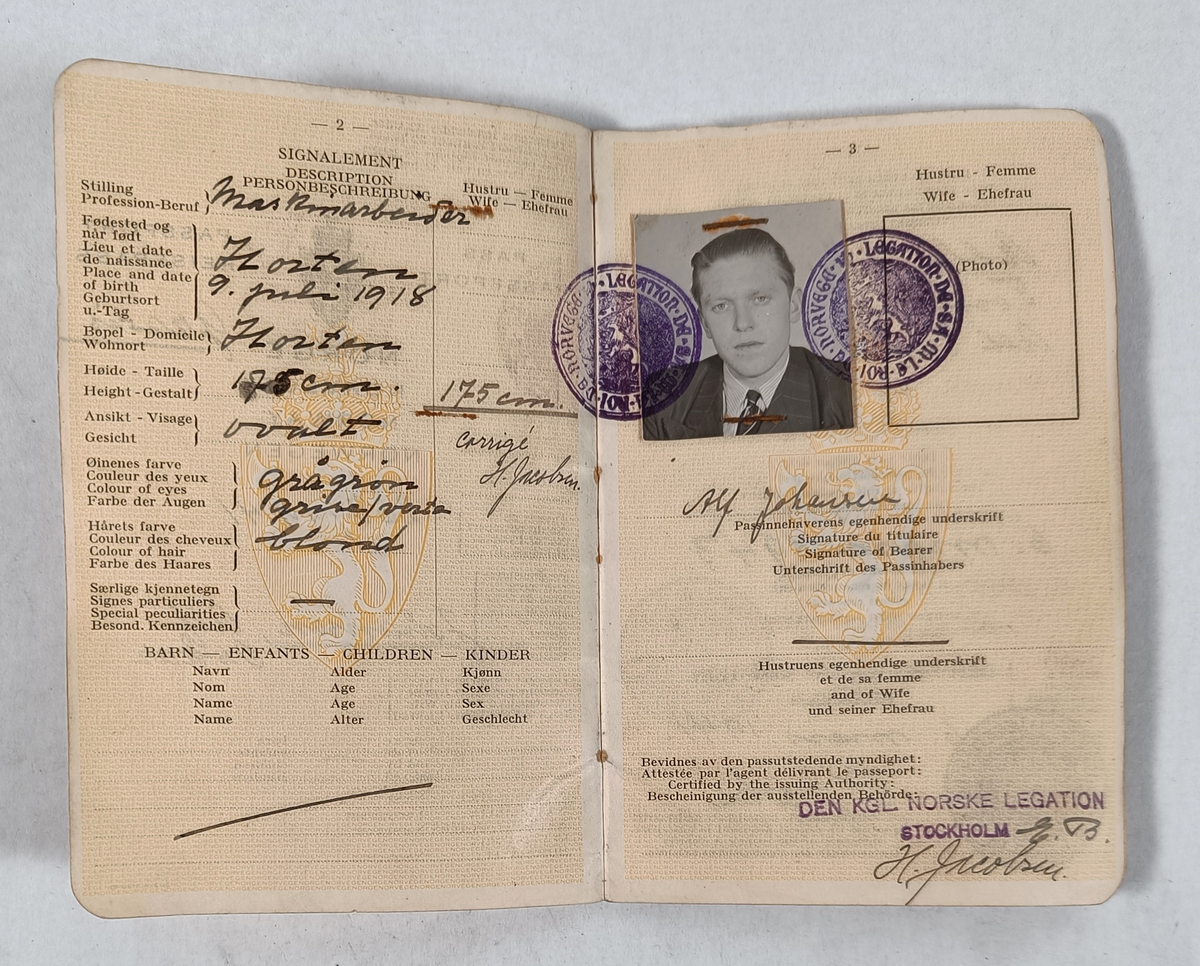 — 2 —
SIGNALEMENT
DESCRIPTION
PERSONBESCHREIBUNG
Hustru — Femme
Wife — Ehefrau
Stilling
Profession-Beruf
Maskinarbeider
Fødested og
når født
Lieu et date
de naissance
Place and date
of birth
Geburtsort
u.-Tag
Horten
9. juli 1918
Bopel - Domicile
Wohnort
Horten
Høide - Taille
Height - Gestalt
175 cm.
175 cm.
Ansikt - Visage
Gesicht
ovalt
corrigé
H. Jacobsen.
Øinenes farve
Couleur des yeux
Colour of eyes
Farbe der Augen
grågrøn
grise/verte
Hårets farve
Couleur des cheveux
Colour of hair
Farbe des Haares
blond
Særlige kjennetegn
Signes particuliers
Special peculiarities
Besond. Kennzeichen
—
BARN — ENFANTS — CHILDREN — KINDER
Navn Alder Kjønn
Nom Age Sexe
Name Age Sex
Name Alter Geschlecht
— 3 —
Hustru - Femme
Wife - Ehefrau
(Photo)
LEGATION DE S.M. LE ROI DE NORVEGE
LEGATION DE S.M. LE ROI DE NORVEGE
Alf Johansen
Passinnehaverens egenhendige underskrift
Signature du titulaire
Signature of Bearer
Unterschrift des Passinhabers
Hustruens egenhendige underskrift
et de sa femme
and of Wife
und seiner Ehefrau
Bevidnes av den passutstedende myndighet:
Attestée par l'agent délivrant le passeport:
Certified by the issuing Authority:
Bescheinigung der ausstellenden Behörde:
DEN KGL. NORSKE LEGATION
STOCKHOLM
H. Jacobsen.